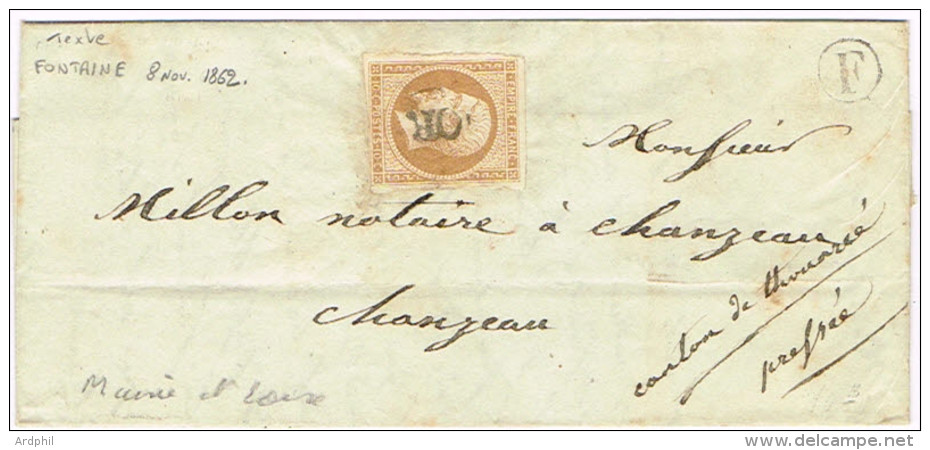 Texte
FONTAINE 8 Nov. 1862.
F
EMPIRE FRANC
OR
Monsieur
Millon notaire à Chanzeau
Chanzeau
canton de thouarcé
pressée
Maine et Loire
Ardphil
www.delcampe.net